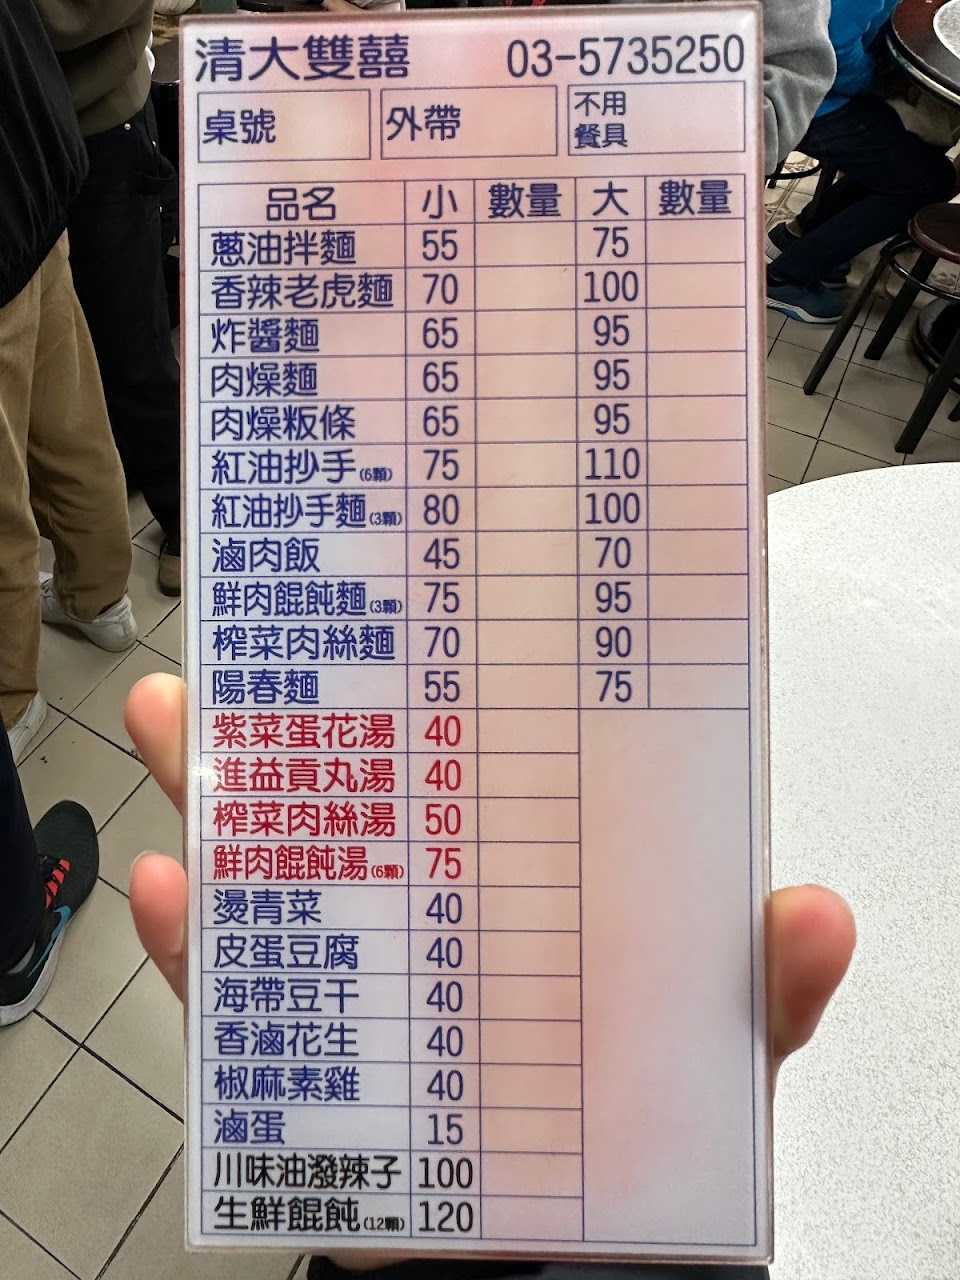 清大雙囍 03-5735250
桌號 外帶 不用餐具
品名 小 數量 大 數量
蔥油拌麵 55 75
香辣老虎麵 70 100
炸醬麵 65 95
肉燥麵 65 95
肉燥粄條 65 95
紅油抄手(6顆) 75 110
紅油抄手麵(3顆) 80 100
滷肉飯 45 70
鮮肉餛飩麵(3顆) 75 95
榨菜肉絲麵 70 90
陽春麵 55 75
紫菜蛋花湯 40
進益貢丸湯 40
榨菜肉絲湯 50
鮮肉餛飩湯(6顆) 75
燙青菜 40
皮蛋豆腐 40
海帶豆干 40
香滷花生 40
椒麻素雞 40
滷蛋 15
川味油潑辣子 100
生鮮餛飩(12顆) 120